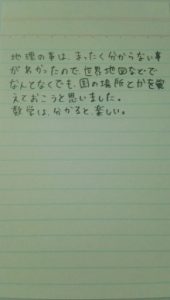 地理の事は、まったく分からない事
が多かったので、世界地図などで
なんとなくでも、国の場所とかを覚
えておこうと思いました。
数学は、分かると、楽しい。